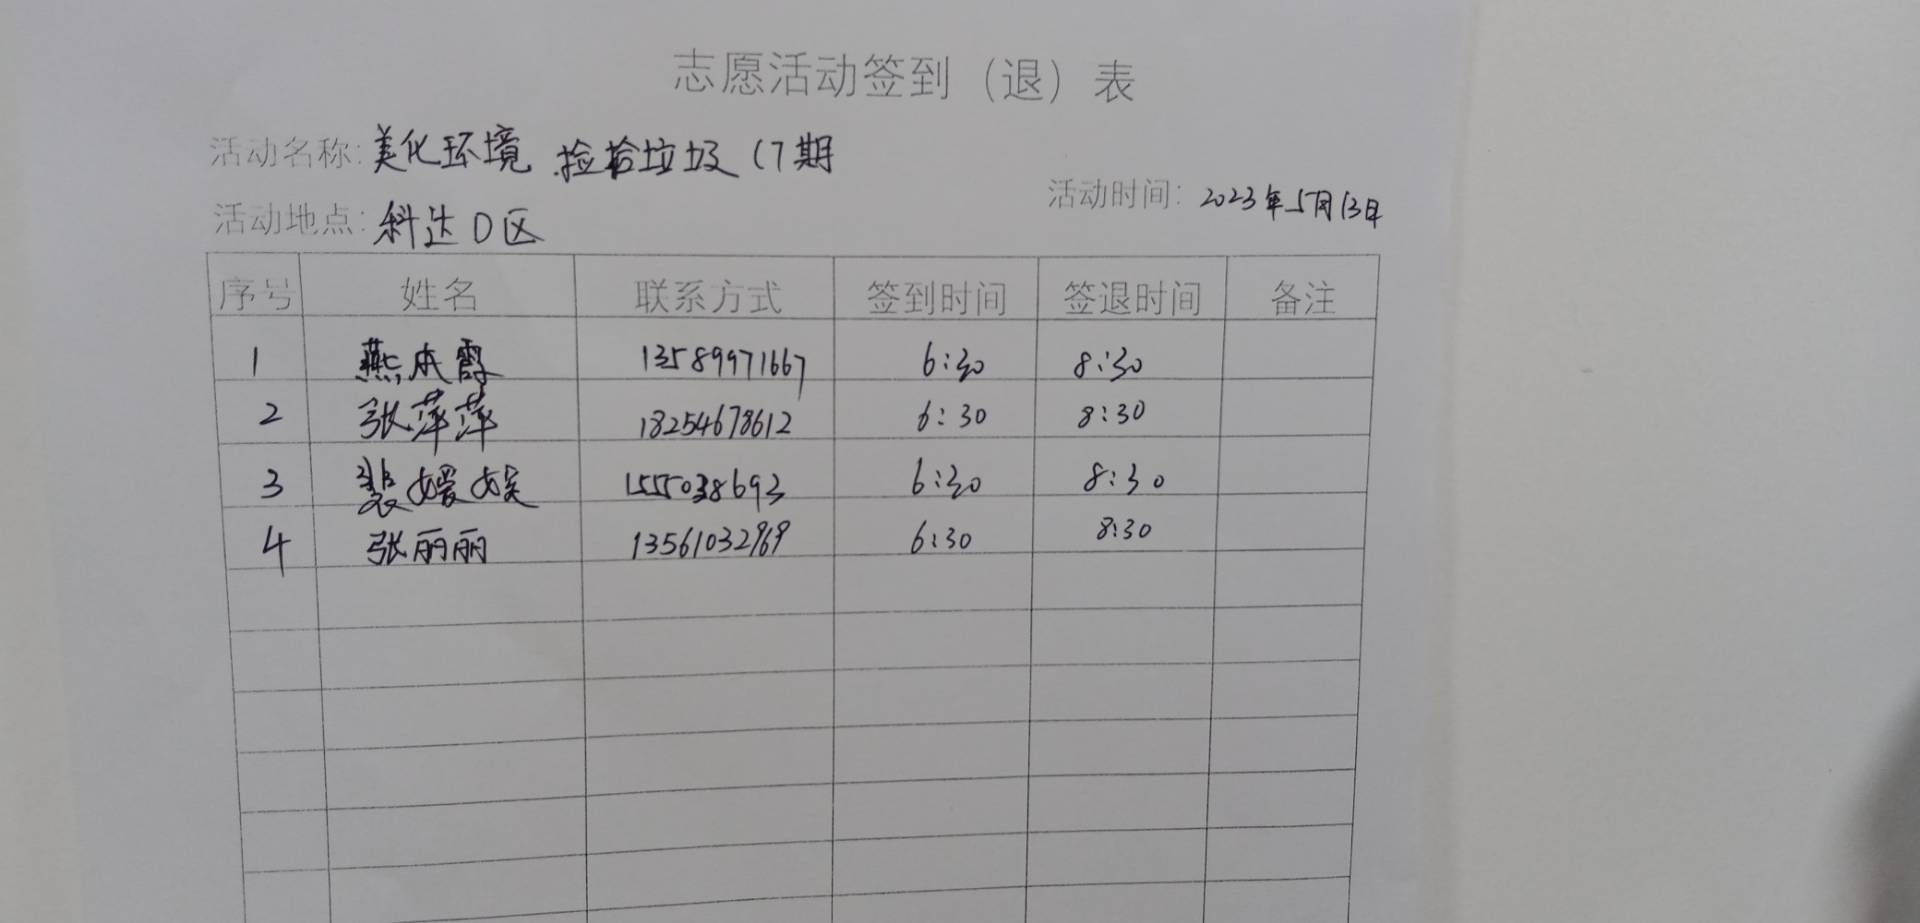 志愿活动签到（退）表
活动名称: 美化环境 捡拾垃圾 17期
活动时间: 2023年5月13日
活动地点: 科达D区
序号 姓名 联系方式 签到时间 签退时间 备注
1 燕本霞 13589971667 6:30 8:30
2 张萍萍 18254678612 6:30 8:30
3 裴媛媛 6:30 8:30
4 张丽丽 13561032969 6:30 8:30